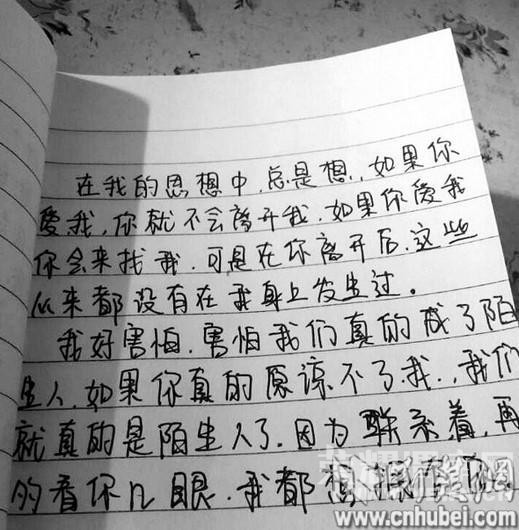 在我的思想中.总是想.如果你
爱我,你就不会离开我.如果你爱我
你会来找我.可是在你离开后.这些
从来都没有在我身上发生过。
我好害怕.害怕我们真的成了陌
生人.如果你真的原谅不了我.,我们
就真的是陌生人了.因为联系着,再
的看你几眼.我都想
www.cnhubei.com